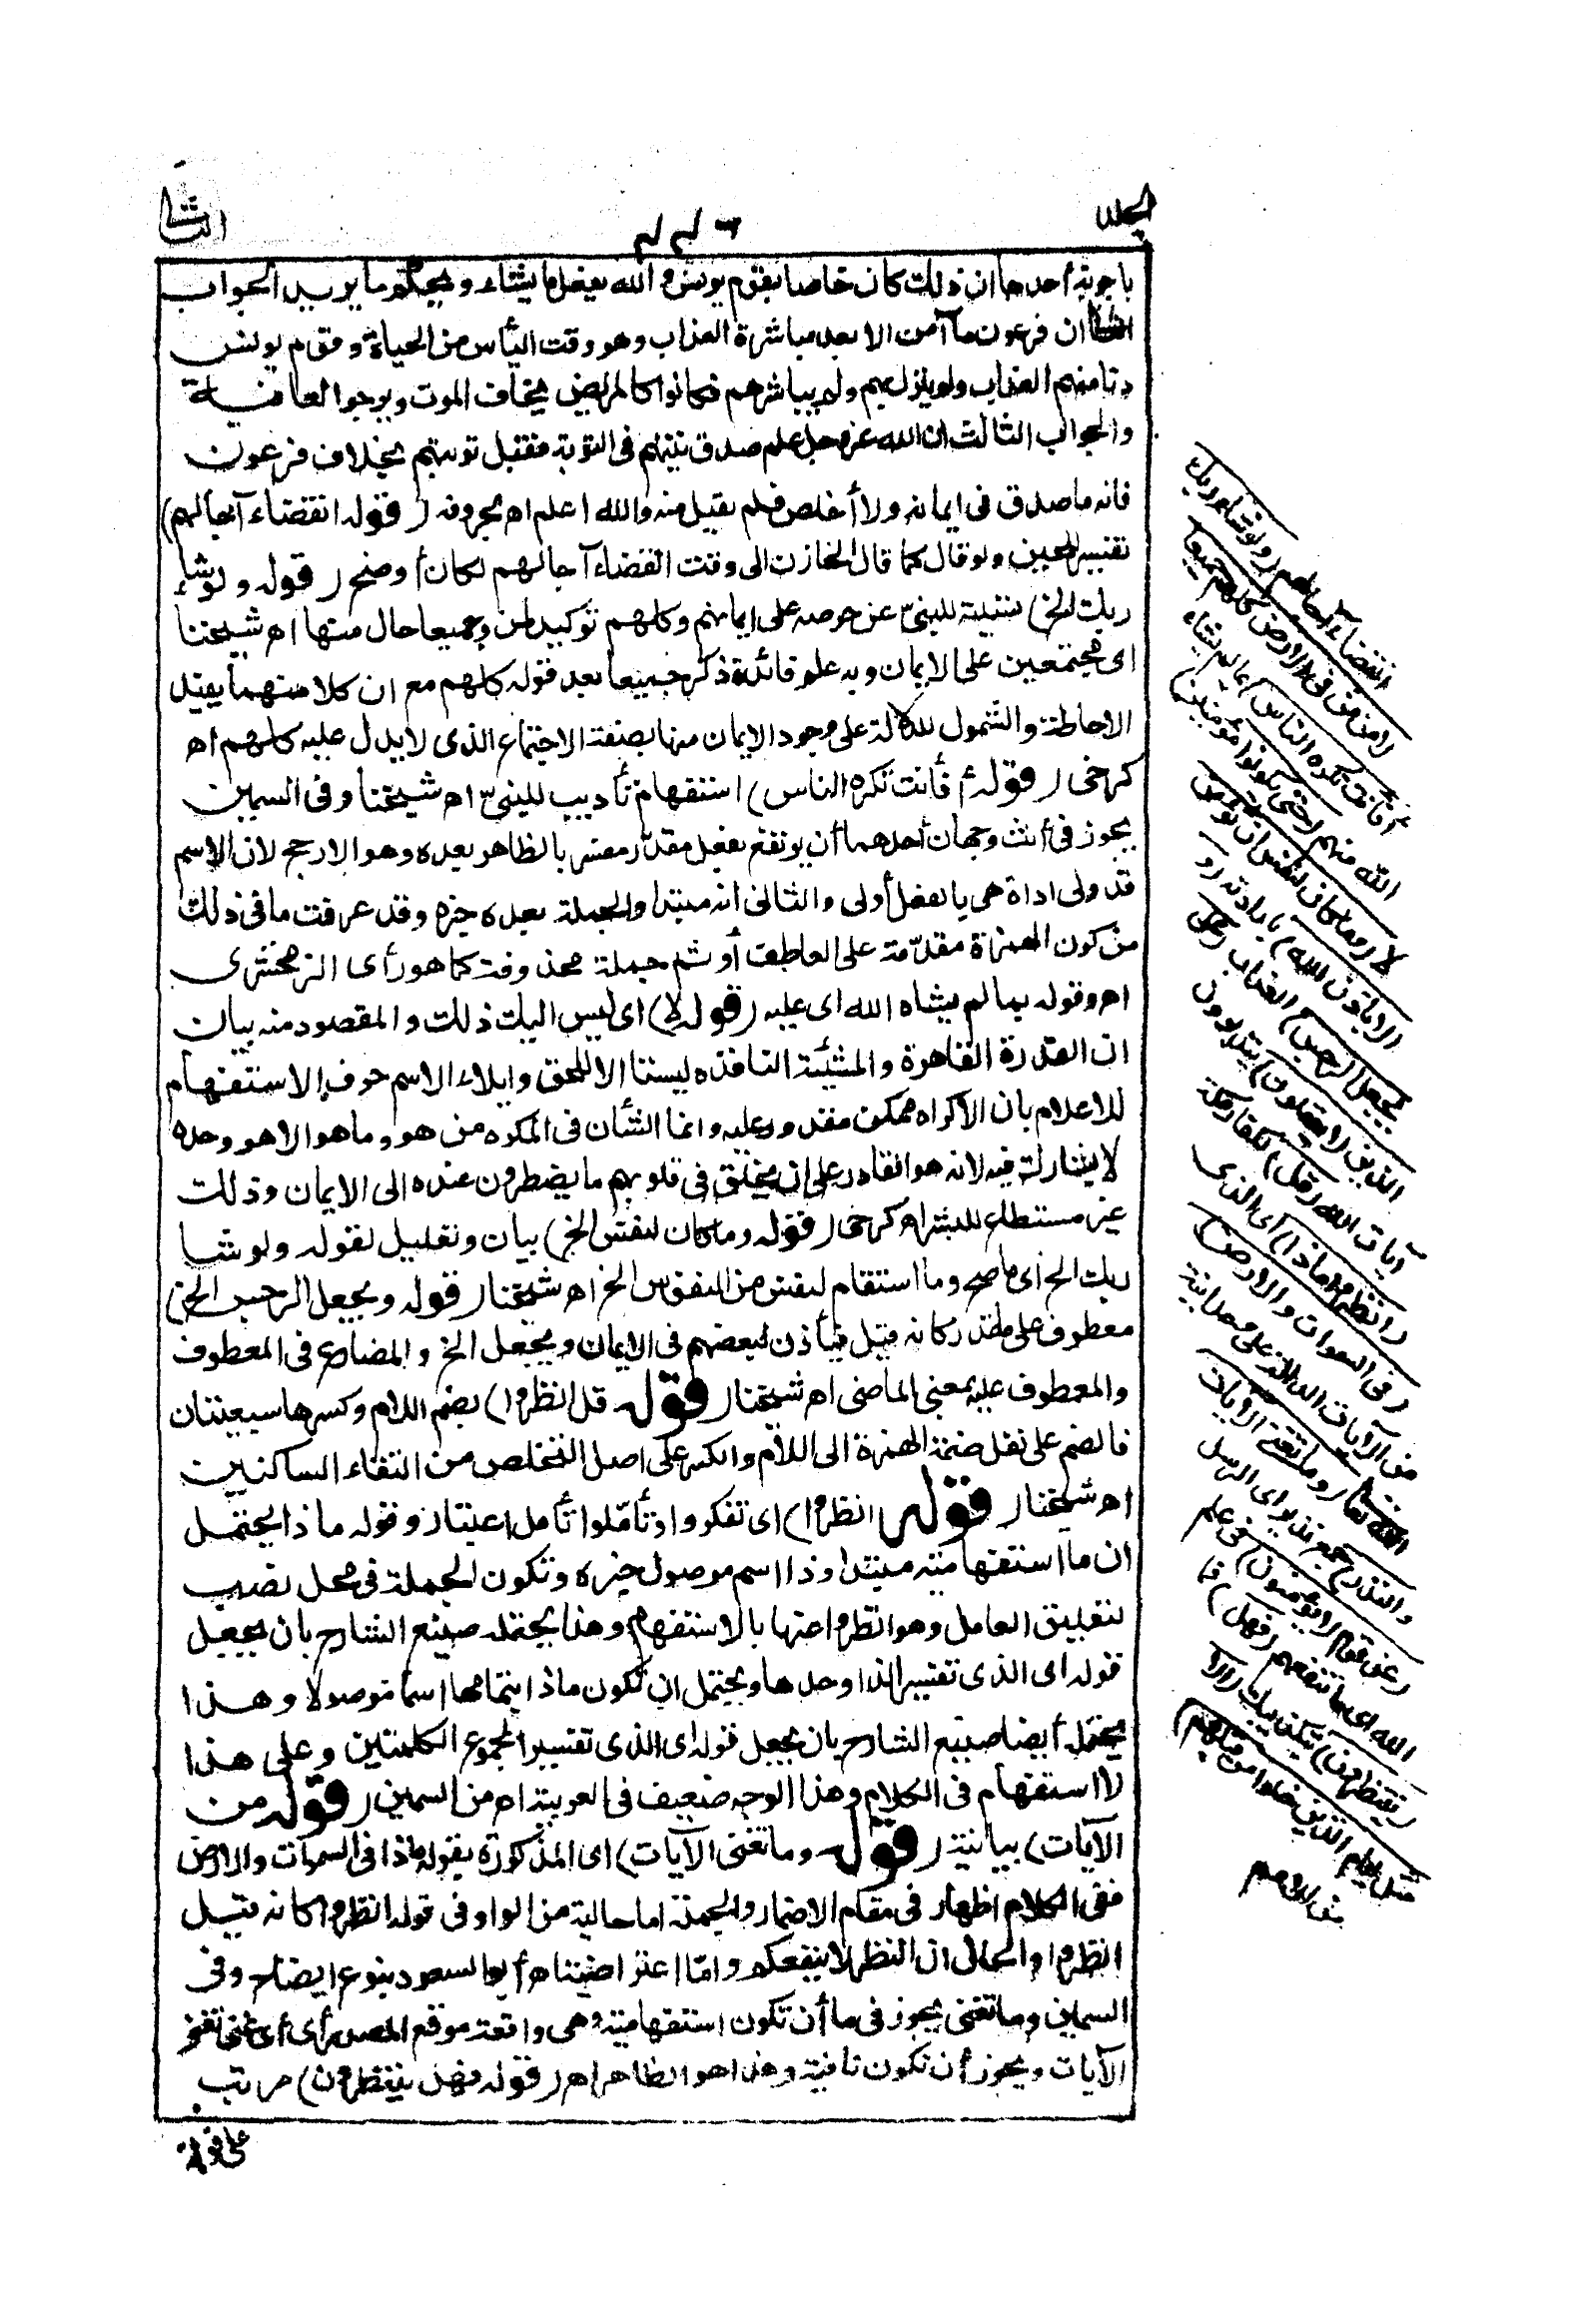 الجلد
٤٤٦
الثانى
باجوبة أحدها ان ذلك كان خاصا بقوم يونس والله يفعل ما يشاء ويحكم ما يريد الجواب
الثانى ان فرعون ما آمن الا بعد مباشرة العذاب وهو وقت اليأس من الحياة وقوم يونس
دنا منهم العذاب ولم ينزل بهم ولم يباشرهم فكانوا كالمريض يخاف الموت ويرجو العافية
والجواب الثالث ان الله عز وجل علم صدق نيتهم فى التوبة فقبل توبتهم بخلاف فرعون
فانه ما صدق فى ايمانه ولا أخلص فلم يقبل منه والله اعلم اه بحروفه (قوله انقضاء آجالهم)
تفسير للحين ولو قال كما قال الخازن الى وقت انقضاء آجالهم لكان أوضح (قوله ولو شاء
ربك الخ) تسلية للنبىّ عن حرصه على ايمانهم وكلهم توكيد لمن وجميعا حال منها اه شيخنا
اى مجتمعين على الايمان وبه علم فائدة ذكر جميعا بعد قوله كلهم مع ان كلا منهما يفيد
الاحاطة والشمول للدلالة على وجود الايمان منها بصفة الاجتماع الذى لا يدل عليه كلهم اه
كرخى (قوله أفأنت تكره الناس) استفهام تأديب للنبىّ اه شيخنا وفى السمين
يجوز فى أنت وجهان أحدهما أن يرتفع بفعل مقدّر مفسر بالظاهر بعده وهو الارجح لان الاسم
قد ولى اداة هى بالفعل أولى والثانى انه مبتدأ والجملة بعده خبره وقد عرفت ما فى ذلك
من كون الهمزة مقدّمة على العاطف أو ثم جملة محذوفة كما هو رأى الزمخشرى
اه وقوله بما لم يشاه الله اى عليه (قوله لا) اى ليس اليك ذلك والمقصود منه بيان
ان القدرة القاهرة والمشيئة النافذه ليستا الا للحق وايلاء الاسم حرف الاستفهام
للاعلام بان الاكراه ممكن مقدور عليه وانما الشأن فى المكره من هو وما هو الا هو وحده
لا يشارك فيه لانه هو القادر على ان يخلق فى قلوبهم ما يضطرون عنده الى الايمان وذلك
غير مستطاع للبشر اه كرخى (قوله وما كان لنفس الخ) بيان وتعليل لقوله ولو شا
ربك الخ اى ما صح وما استقام لنفس من النفوس الخ اه شيخنا (قوله ويجعل الرجس الخ)
معطوف على مقدر كانه قيل فيأذن لبعضهم فى الايمان ويجعل الخ والمضارع فى المعطوف
والمعطوف عليه بمعنى الماضى اه شيخنا (قوله قل انظروا) بضم اللام وكسرها سبعيتان
فالضم على نقل ضمة الهمزة الى اللام والكسر على اصل التخلص من التقاء الساكنين
اه شيخنا (قوله انظروا) اى تفكروا وتأمّلوا تأمل اعتبار وقوله ماذا يحتمل
ان ما استفهامية مبتدا وذا اسم موصول خبره وتكون الجملة فى محل نصب
لتعليق العامل وهو انظروا عنها بالاستفهام وهذا يحتمله صنيع الشارح بان يجعل
قوله اى الذى تفسيرا لذا وحدها ويحتمل ان تكون ماذا بتمامها اسما موصولا وهذا
يحتمله أيضا صنيع الشارح بان يجعل قوله اى الذى تفسيرا لمجموع الكلمتين وعلى هذا
لا استفهام فى الكلام وهذا الوجه ضعيف فى العربية اه من السمين (قوله من
الآيات) بيانية (قوله وما تغنى الآيات) اى المذكورة بقوله ماذا فى السموات والارض
ففى الكلام اظهار فى مقام الاضمار والجملة اما حالية من الواو فى قوله انظروا كانه قيل
انظروا والحال ان النظر لا ينفعكم وامّا اعتراضية اه أبو السعود بنوع ايضاح وفى
السمين وما تغنى يجوز فى ما أن تكون استفهامية وهى واقعة موقع المصدر أى أى غنى تغنى
الآيات ويجوز أن تكون نافية وهذا هو الظاهر اه (قوله فهل ينتظرون) مرتب
على قوله
انقضاء آجالهم (ولو شاء ربك
لآمن من فى الارض كلهم جميعا
أفأنت تكره الناس) بما لم يشاه
الله منهم (حتى يكونوا مؤمنين)
لا (وما كان لنفس ان تؤمن
الا باذن الله) بارادته (و
يجعل الرجس) العذاب (على
الذين لا يعقلون) يتدبرون
آيات الله (قل) لكفار مكة
(انظروا ماذا) اى الذى
(فى السموات والارض)
من الآيات الدالة على وحدانية
الله تعالى (وما تغنى الآيات
والنذر) جمع نذير اى الرسل
(عن قوم لا يؤمنون) فى علم
الله اى ما تنفعهم (فهل) فما
(ينتظرون) بتكذيبك (الا
مثل ايام الذين خلوا من قبلهم)
من الامم